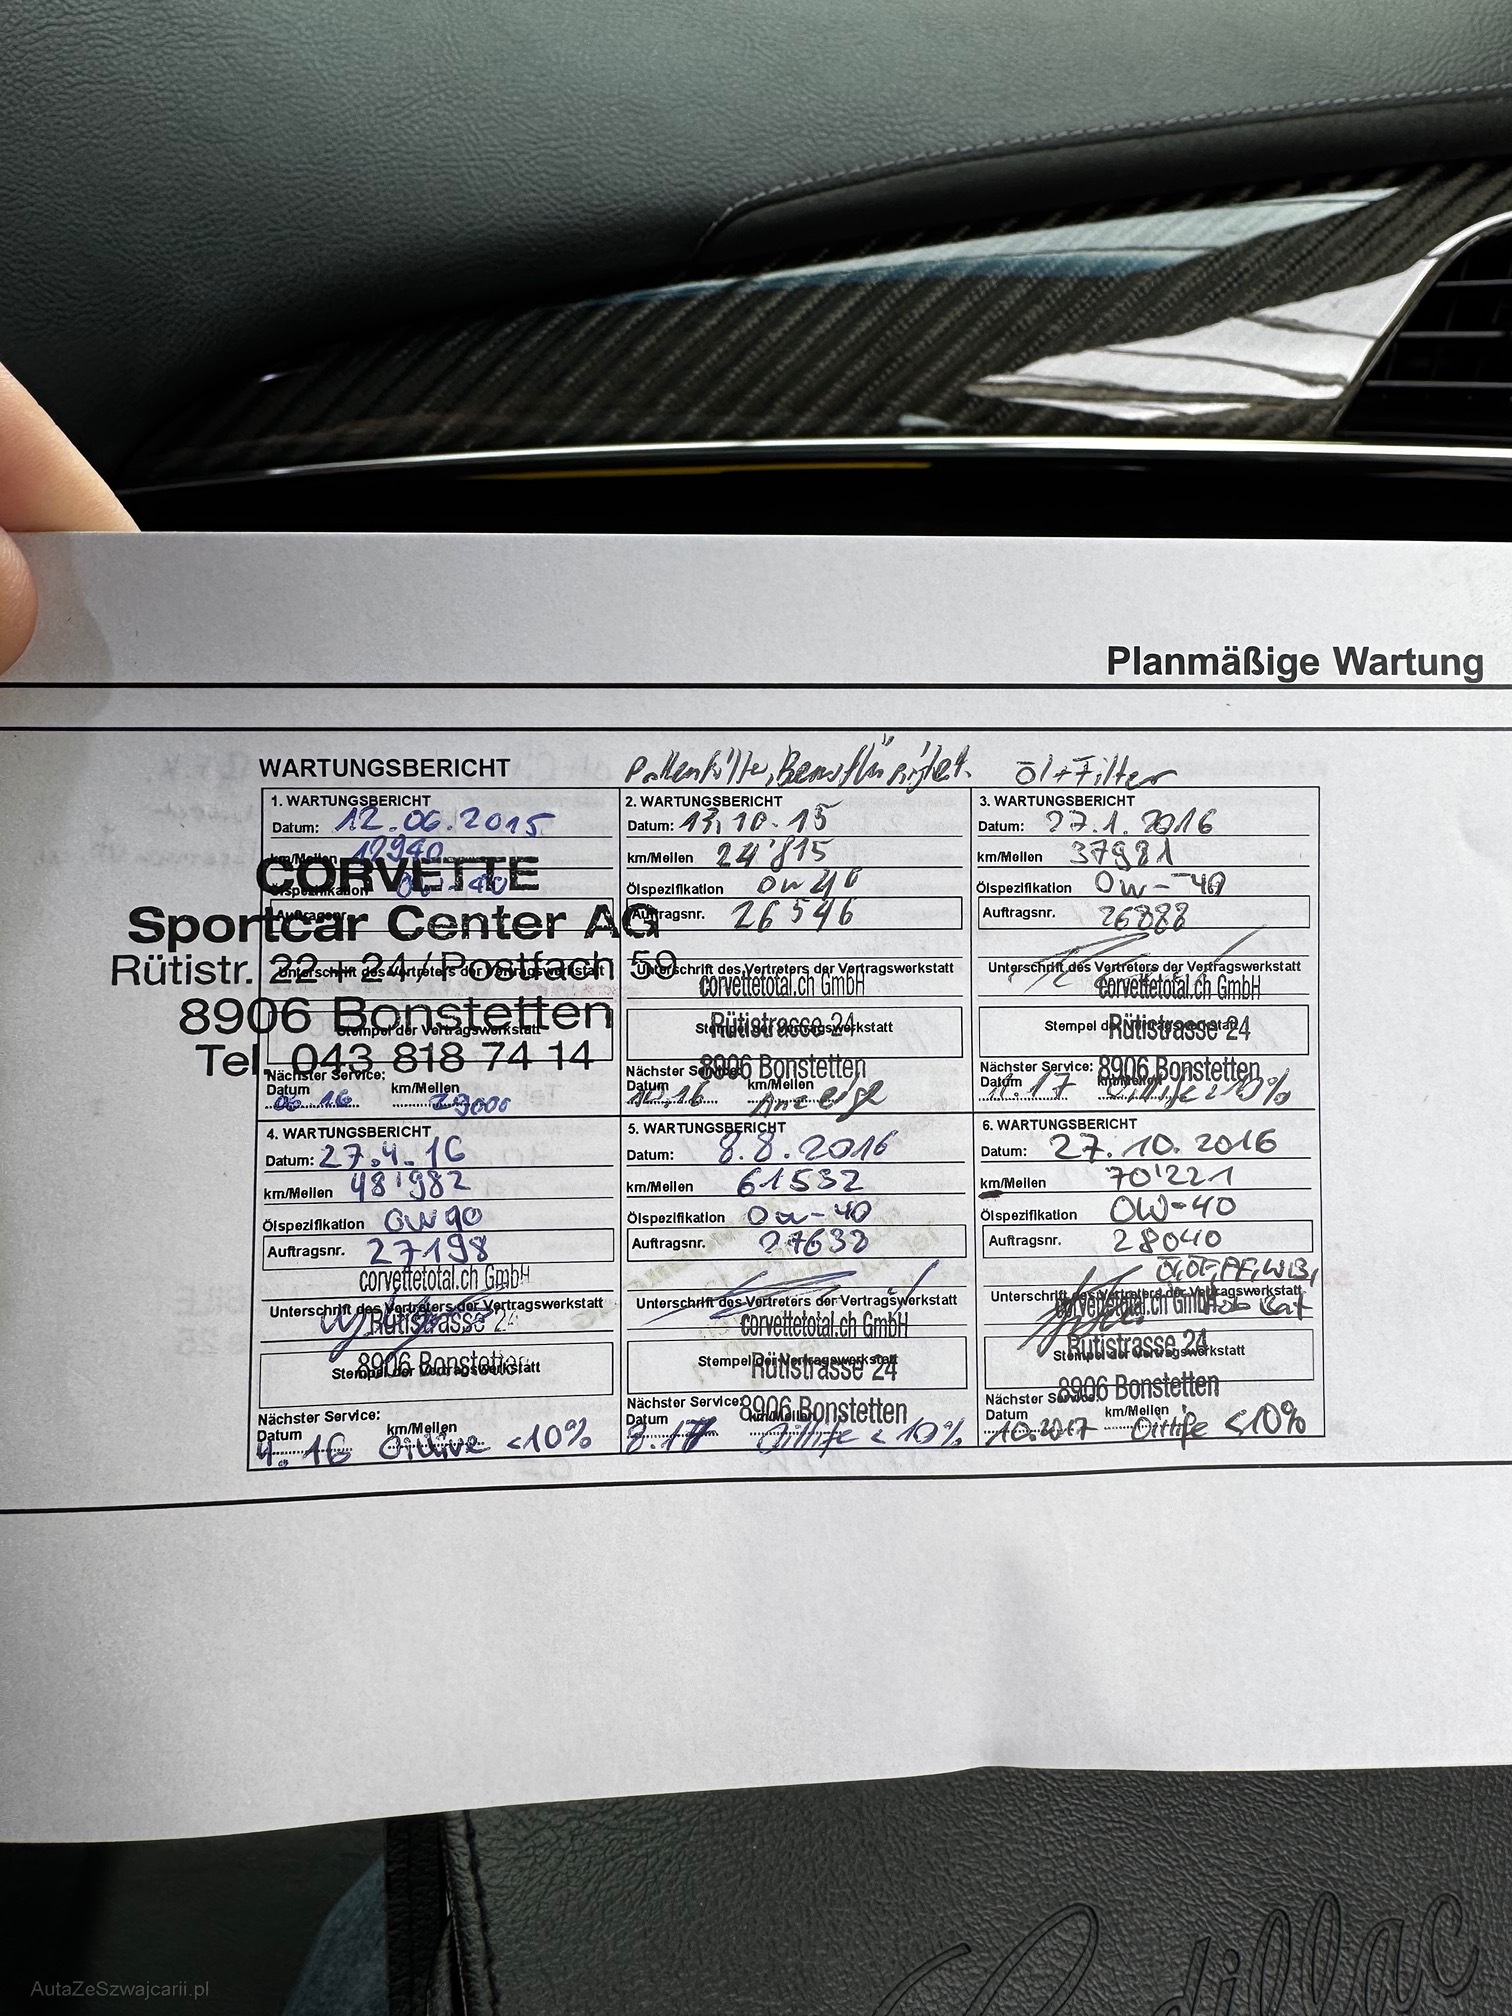 Planmäßige Wartung
WARTUNGSBERICHT
Öl+Filter
1. WARTUNGSBERICHT
Datum: 12.06.2015
km/Meilen 12940
Ölspezifikation 0w-40
Auftragsnr.
CORVETTE
Sportcar Center AG
Rütistr. 22+24/Postfach 59
8906 Bonstetten
Tel. 043 818 74 14
Unterschrift des Vertreters der Vertragswerkstatt
Stempel der Vertragswerkstatt
Nächster Service:
Datum km/Meilen
06.16 29000
2. WARTUNGSBERICHT
Datum: 13.10.15
km/Meilen 24'815
Ölspezifikation 0w40
Auftragsnr. 26546
Unterschrift des Vertreters der Vertragswerkstatt
corvettetotal.ch GmbH
Rütistrasse 24
Stempel der Vertragswerkstatt
8906 Bonstetten
Nächster Service:
Datum km/Meilen
10.16 Anzeige
3. WARTUNGSBERICHT
Datum: 27.1.2016
km/Meilen 37981
Ölspezifikation 0w-40
Auftragsnr. 26888
Unterschrift des Vertreters der Vertragswerkstatt
corvettetotal.ch GmbH
Rütistrasse 24
Stempel der Vertragswerkstatt
8906 Bonstetten
Nächster Service:
Datum km/Meilen
11.17 Oillife <10%
4. WARTUNGSBERICHT
Datum: 27.4.16
km/Meilen 48'982
Ölspezifikation 0W40
Auftragsnr. 27198
corvettetotal.ch GmbH
Unterschrift des Vertreters der Vertragswerkstatt
Rütistrasse 24
8906 Bonstetten
Stempel der Vertragswerkstatt
Nächster Service:
Datum km/Meilen
4.16 <10%
5. WARTUNGSBERICHT
Datum: 8.8.2016
km/Meilen 61532
Ölspezifikation 0w-40
Auftragsnr. 27638
Unterschrift des Vertreters der Vertragswerkstatt
corvettetotal.ch GmbH
Stempel der Vertragswerkstatt
Rütistrasse 24
Nächster Service:
8906 Bonstetten
Datum km/Meilen
8.17 Oillife < 10%
6. WARTUNGSBERICHT
Datum: 27.10.2016
km/Meilen 70'221
Ölspezifikation 0W-40
Auftragsnr. 28040
Unterschrift des Vertreters der Vertragswerkstatt
corvettetotal.ch GmbH
Rütistrasse 24
Stempel der Vertragswerkstatt
8906 Bonstetten
Nächster Service:
Datum km/Meilen
10.2017 Oillife <10%
Cadillac
AutaZeSzwajcarii.pl